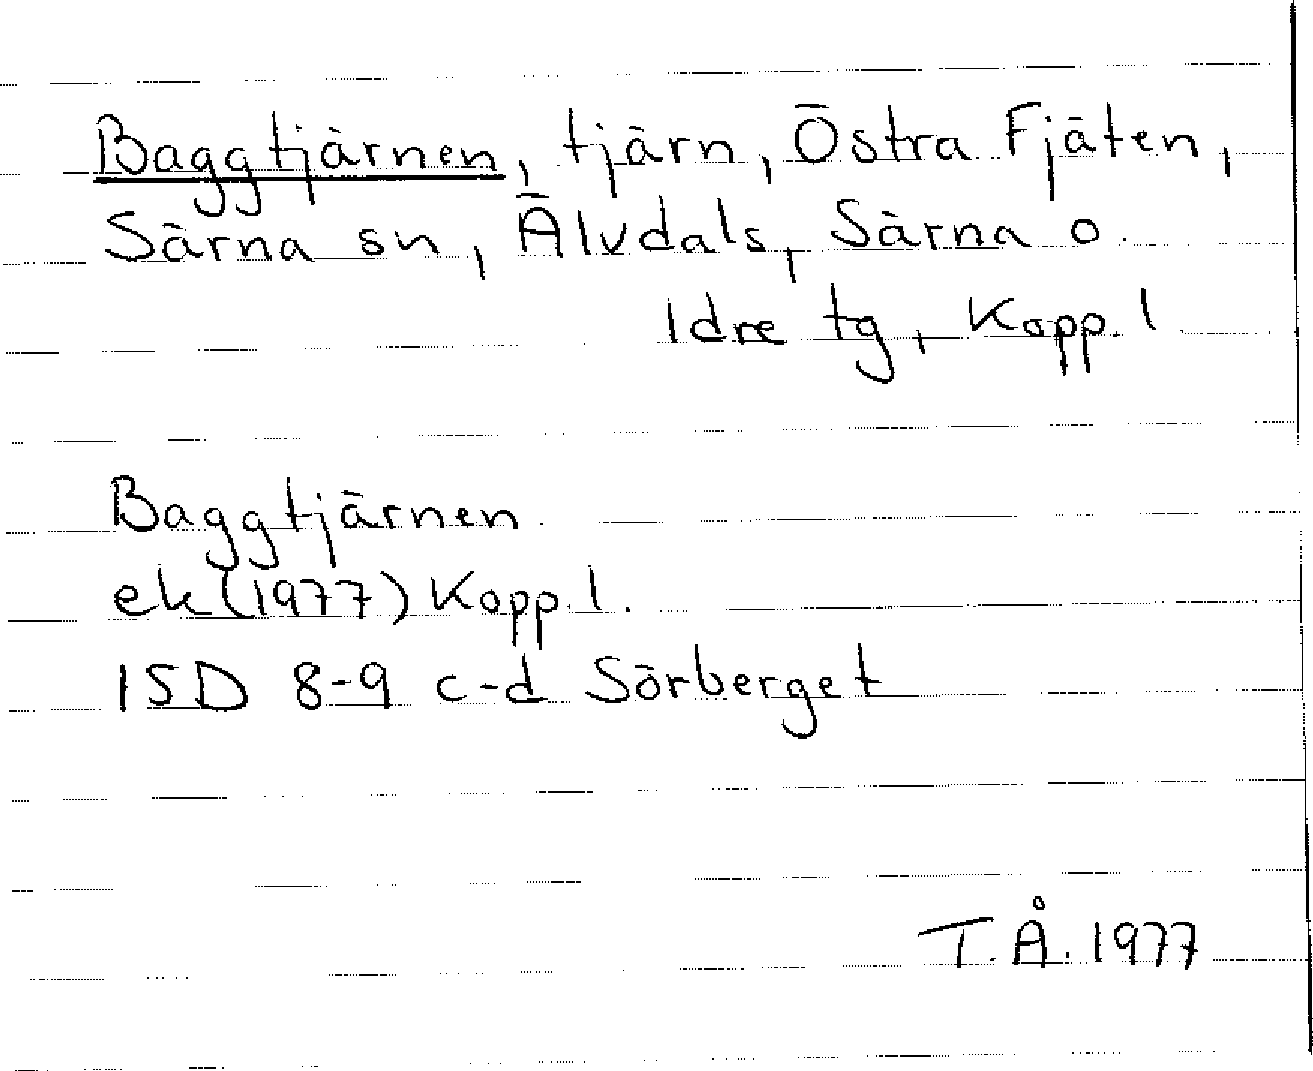 Baggtjärnen, tjärn, Östra Fjäten,
Särna sn, Älvdals, Särna o.
Idre tg, Kopp. l
Baggtjärnen.
ek (1977) Kopp. l.
15D 8-9 c-d Sörberget
T.Å. 1977